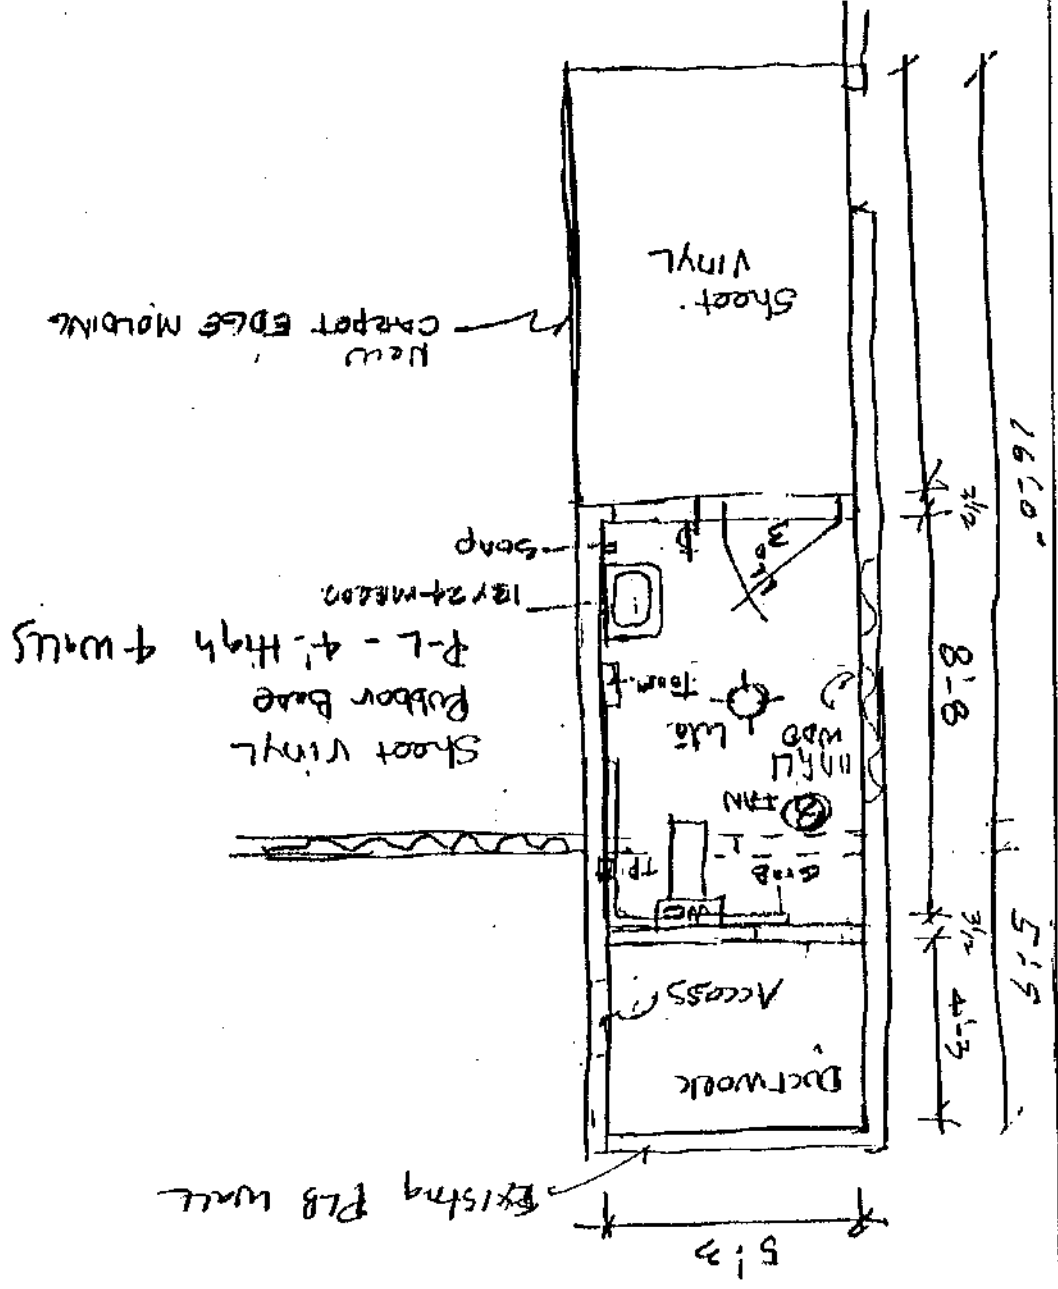 5'3
Existing PLB WALL
Ductwork
Access
4'-3
3½
5'-5
WC
Grab
TP
FAN
Sheet Vinyl
Rubber Base
P-L - 4' High 4 WALLS
WDO
8'-8
Soap
3½
16'-0"
New
CARPET EDGE MOLDING
Sheet
Vinyl